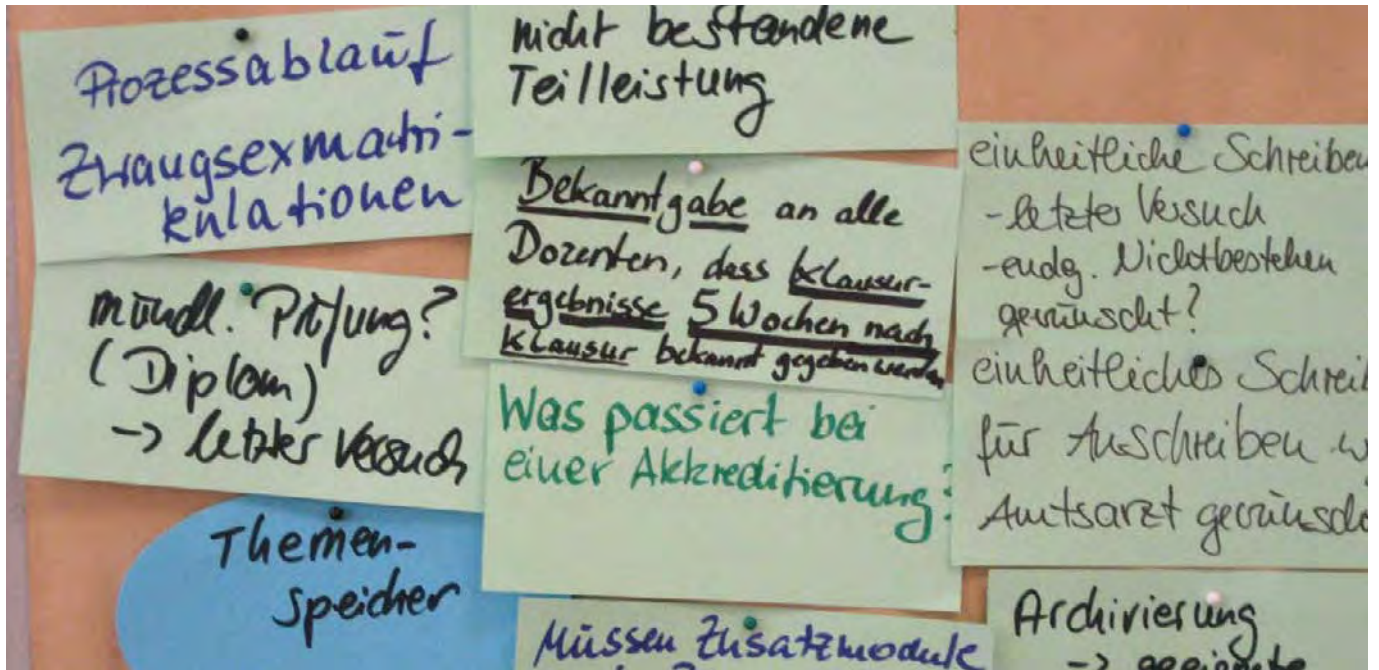 Prozessablauf
Zwangsexmatri-
kulationen
mündl. Prüfung?
(Diplom)
-> letzter Versuch
Themen-
speicher
nicht bestandene
Teilleistung
Bekanntgabe an alle
Dozenten, dass Klausur-
ergebnisse 5 Wochen nach
Klausur bekannt gegeben werden
Was passiert bei
einer Akkreditierung?
Müssen Zusatzmodule
einheitliche Schreiben
- letzter Versuch
- endg. Nichtbestehen
gewünscht?
einheitliches Schrei
für Anschreiben
Amtsarzt gewünsch
Archivierung
-> geeignete